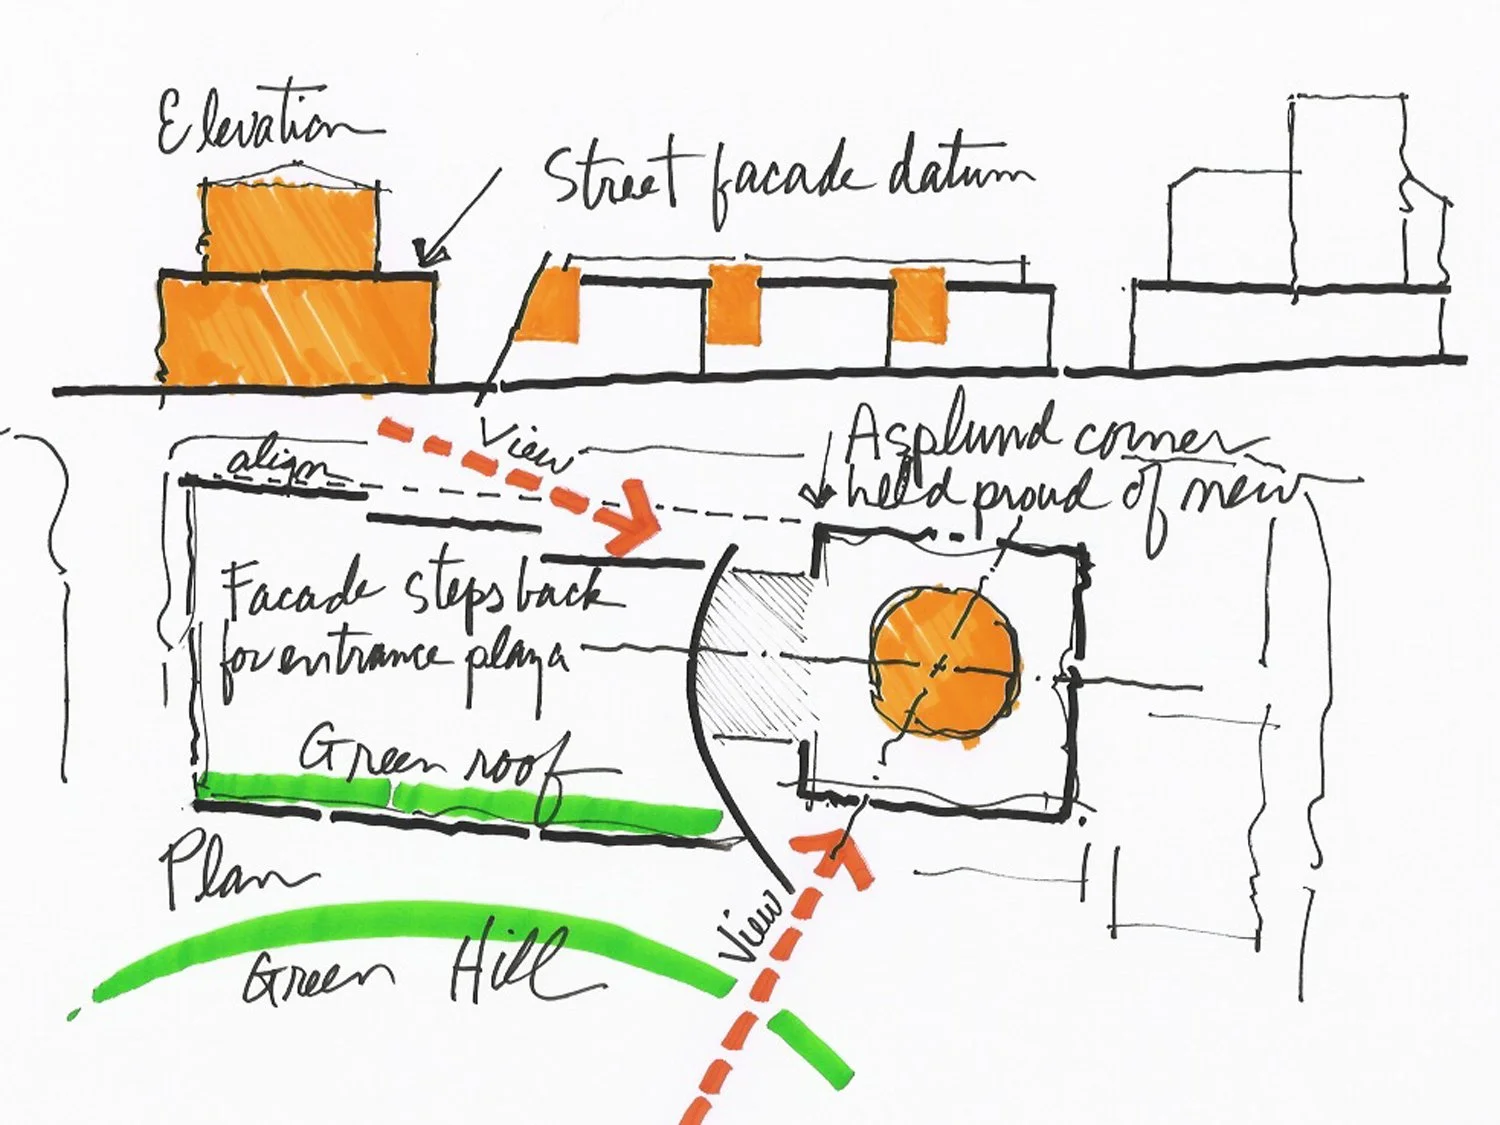 Elevation
Street facade datum
View
align
Asplund corner
held proud of new
Facade steps back
for entrance plaza
Green roof
Plan
Green Hill
View